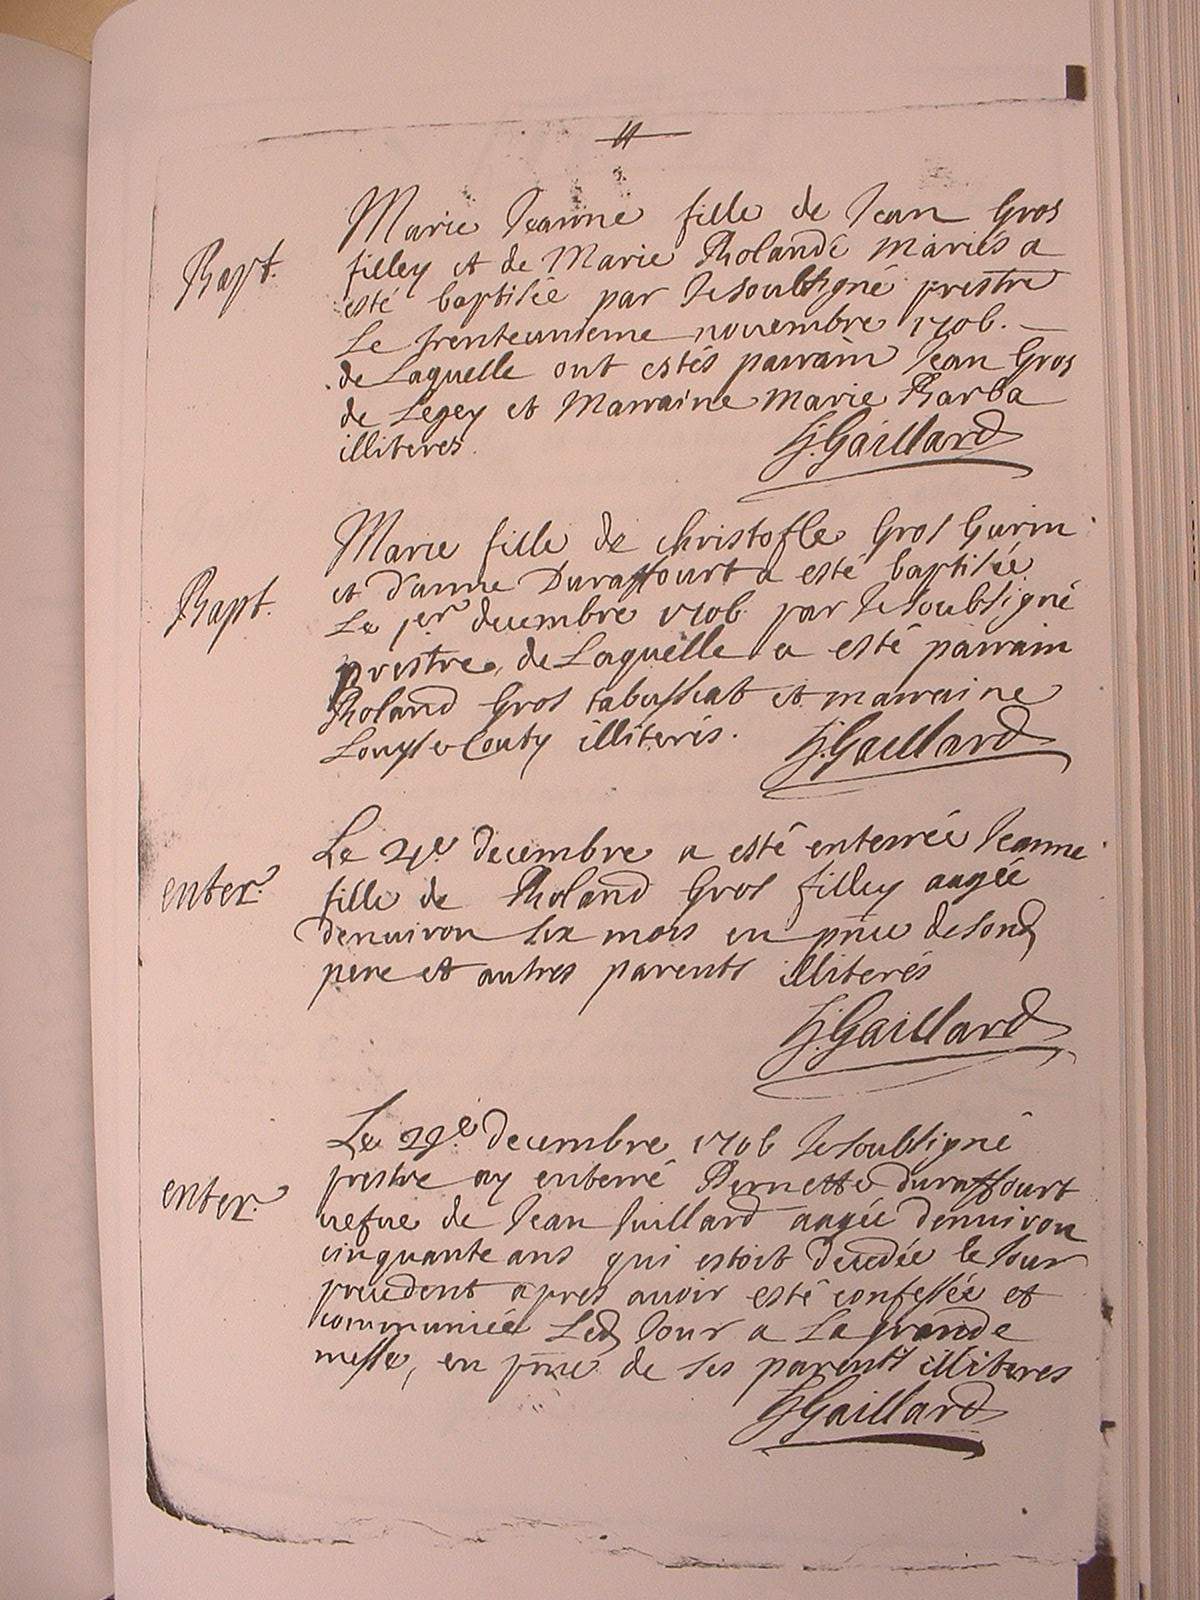 11
Bapt.
Marie Jeanne fille de Jean Gros
filley et de Marie Rolande mariés a
esté baptisée par Je soubsigné prestre
Le trenteunieme nouembre 1706.
de Laquelle ont estés parrain Jean Gros
de Legey et Marraine marie Barba
illiteres.
G. Gaillard
Bapt.
Marie fille de christofle Gros Gurin
et d'anne Duraffourt a esté baptisée
Le 1er decembre 1706 par Je soubsigné
prestre, de Laquelle a esté parrain
Roland Gros tabussiat et marraine
Louyse Couty illiterés.
G. Gaillard
enter.
Le decembre a esté enterrée Jeanne
fille de Roland Gros filley aagée
denuiron six mois en pnce de sond
pere et autres parents illiterés
G. Gaillard
enter.
Le 29e decembre 1706 Je soubsigné
prestre ay enterré Pernette duraffourt
uefue de Jean Juillard aagée denuiron
cinquante ans qui estoit decedée le Jour
precedent apres auoir esté confessée et
communiée Led Jour a La grande
messe, en pnce de ses parents illiteres
G. Gaillard